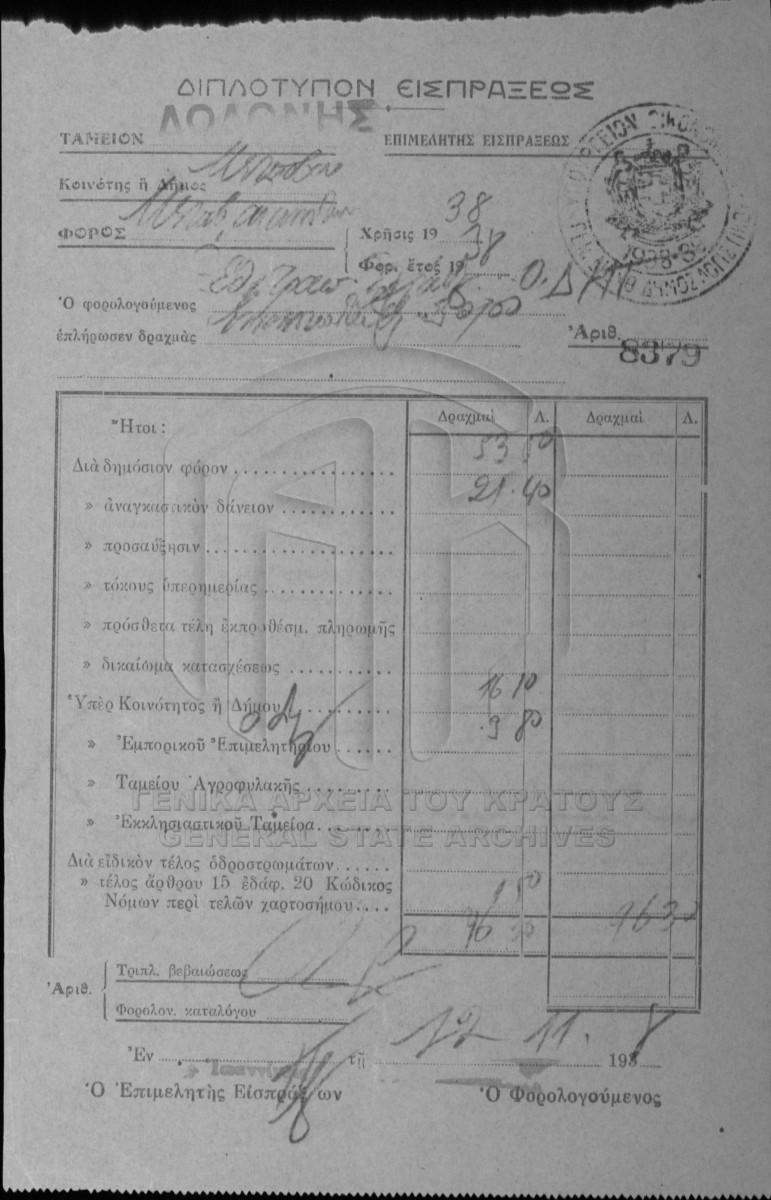 ΔΙΠΛΟΤΥΠΟΝ ΕΙΣΠΡΑΞΕΩΣ
ΔΩΔΩΝΗΣ
ΤΑΜΕΙΟΝ
ΕΠΙΜΕΛΗΤΗΣ ΕΙΣΠΡΑΞΕΩΣ
Κοινότης ἢ Δῆμος
ΦΟΡΟΣ
Χρῆσις 19 38
Φορ. ἔτος 19 38
1938-39
Ὁ φορολογούμενος
ἐπλήρωσεν δραχμὰς
Ἀριθ. 8379
Ἤτοι :
Δραχμαὶ Λ. Δραχμαὶ Λ.
Διὰ δημόσιον φόρον 53 50
» ἀναγκαστικὸν δάνειον 21.40
» προσαύξησιν
» τόκους ὑπερημερίας
» πρόσθετα τέλη ἐκπροθέσμ. πληρωμῆς
» δικαίωμα κατασχέσεως
Ὑπὲρ Κοινότητος ἢ Δήμου 16 10
» Ἐμπορικοῦ Ἐπιμελητηρίου 3 80
» Ταμείου Ἀγροφυλακῆς
» Ἐκκλησιαστικοῦ Ταμείου
ΓΕΝΙΚΑ ΑΡΧΕΙΑ ΤΟΥ ΚΡΑΤΟΥΣ
GENERAL STATE ARCHIVES
Διὰ εἰδικὸν τέλος ὁδροστρωμάτων
» τέλος ἄρθρου 15 ἐδάφ. 20 Κώδικος
Νόμων περὶ τελῶν χαρτοσήμου 1 50
96 30 96 30
Ἀριθ.
Τριπλ. βεβαιώσεως
Φορολον. καταλόγου
Ἐν Ἰωαννίνοις τῇ 12 11. 1938
Ὁ Ἐπιμελητὴς Εἰσπράξεων
Ὁ Φορολογούμενος